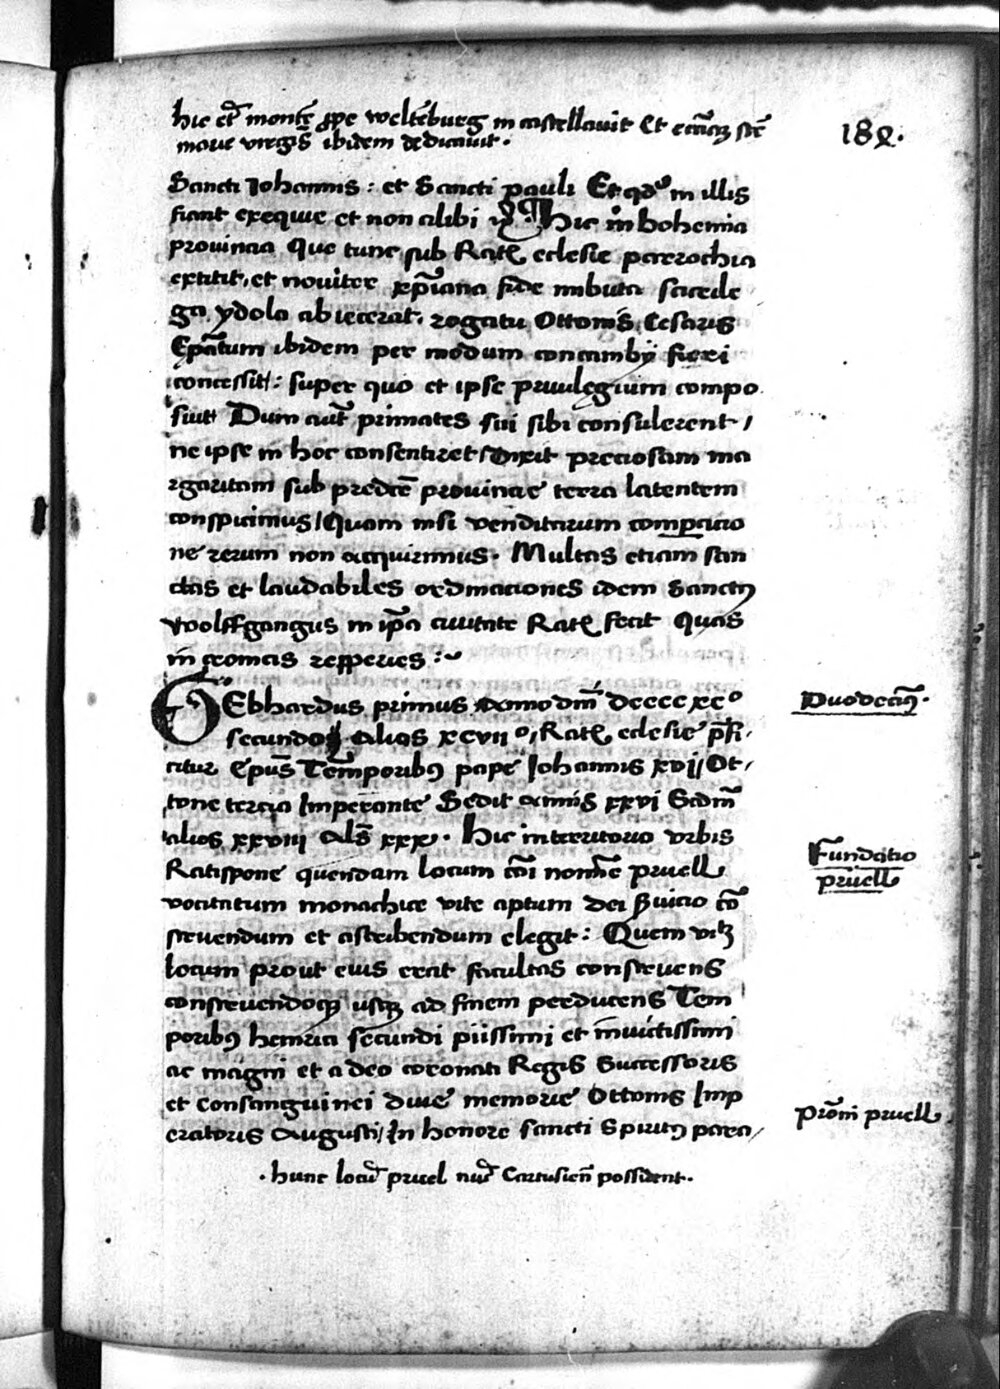 hic etiā montē ꝓpe welteburg incastellauit Et eccāꝫ stē
marie virgīs ibidem dedicauit.
182.
Sancti Johannis: et Sancti pauli Et qd in illis
fiant exequie et non alibi Hic in bohemia
prouincia que tunc sub Ratꝭ eclesie parrochia
extitit, et nouiter xp̄iana fide imbuta sacrile
ga ydola abiecerat, rogatu Ottonis Cesaris
Ep̄atum ibidem per modum concambij fieri
concessit: super quo et ipse priuilegium compo
suit Dum aut̄ primates sui sibi consulerent /
ne ipse in hoc consentiret / Dixit preciosam ma
rgaritam sub predc̄e prouincie terra latentem
conspicimus / Quam nisi venditarum compacio
ne rerum non acquirimus. Multas etiam san
ctas et laudabiles ordinaciones idem Sanctꝰ
Wolffgangus in ip̄a ciuitate Ratꝭ fecit Quas
in cronicis repperies:~
GEbhardus primus Anno dnī dcccc xcº
secundo alias xcvii º, Ratꝭ eclesie p̄fi,
citur Ep̄us Temporibꝰ pape Johannis xvij / Ot,
tone tercia Imperante Sedit annis xxvi Scdm̄
alios xxviii Als̄ xxx. Hic in territorio vrbis
Ratispone quendam locum cōi nomīe pruell
vocitatum monachice vite aptum dei ẜuicio cō
struendum et ascribendum elegit: Quem vitꝫ
locum prout eius erat facultas construens
construendoqꝫ usqꝫ ad finem perducens Tem
poribꝰ heinrici secundi piissimi et inuictissimi
ac magni et a deo coronati Regis Successoris
et Consanguinei diue memorie Ottonis Imp
eratoris Augusti / In honore sancti Spiritꝰ para /
Duodecimꝰ.
Fundatio
pruell
Prōm pruell
. hunc locū pruel nūc Cartusien̄ possident.